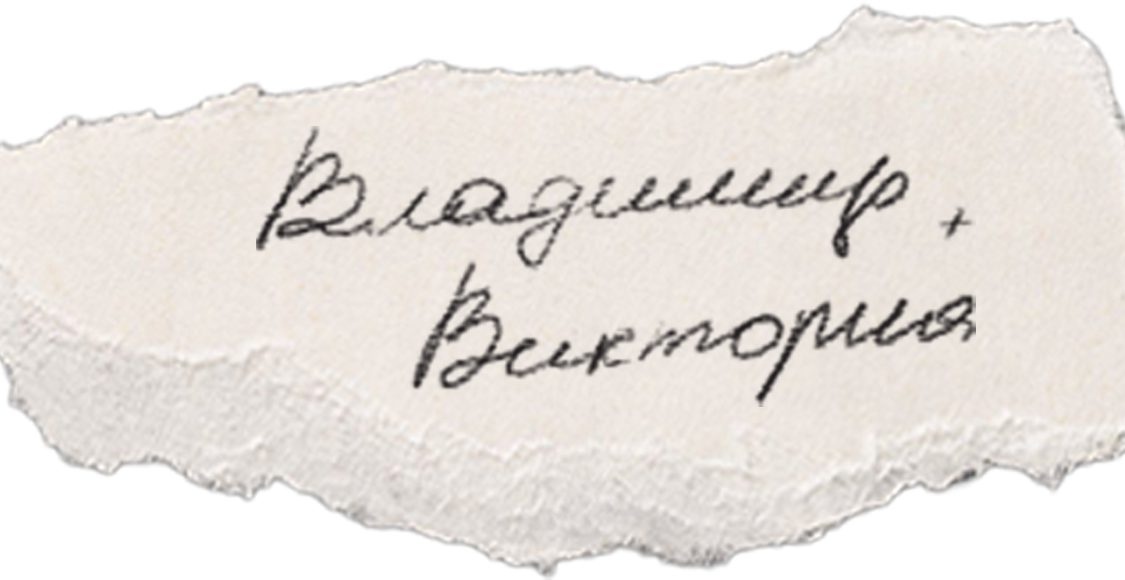 Владимир +
Виктория